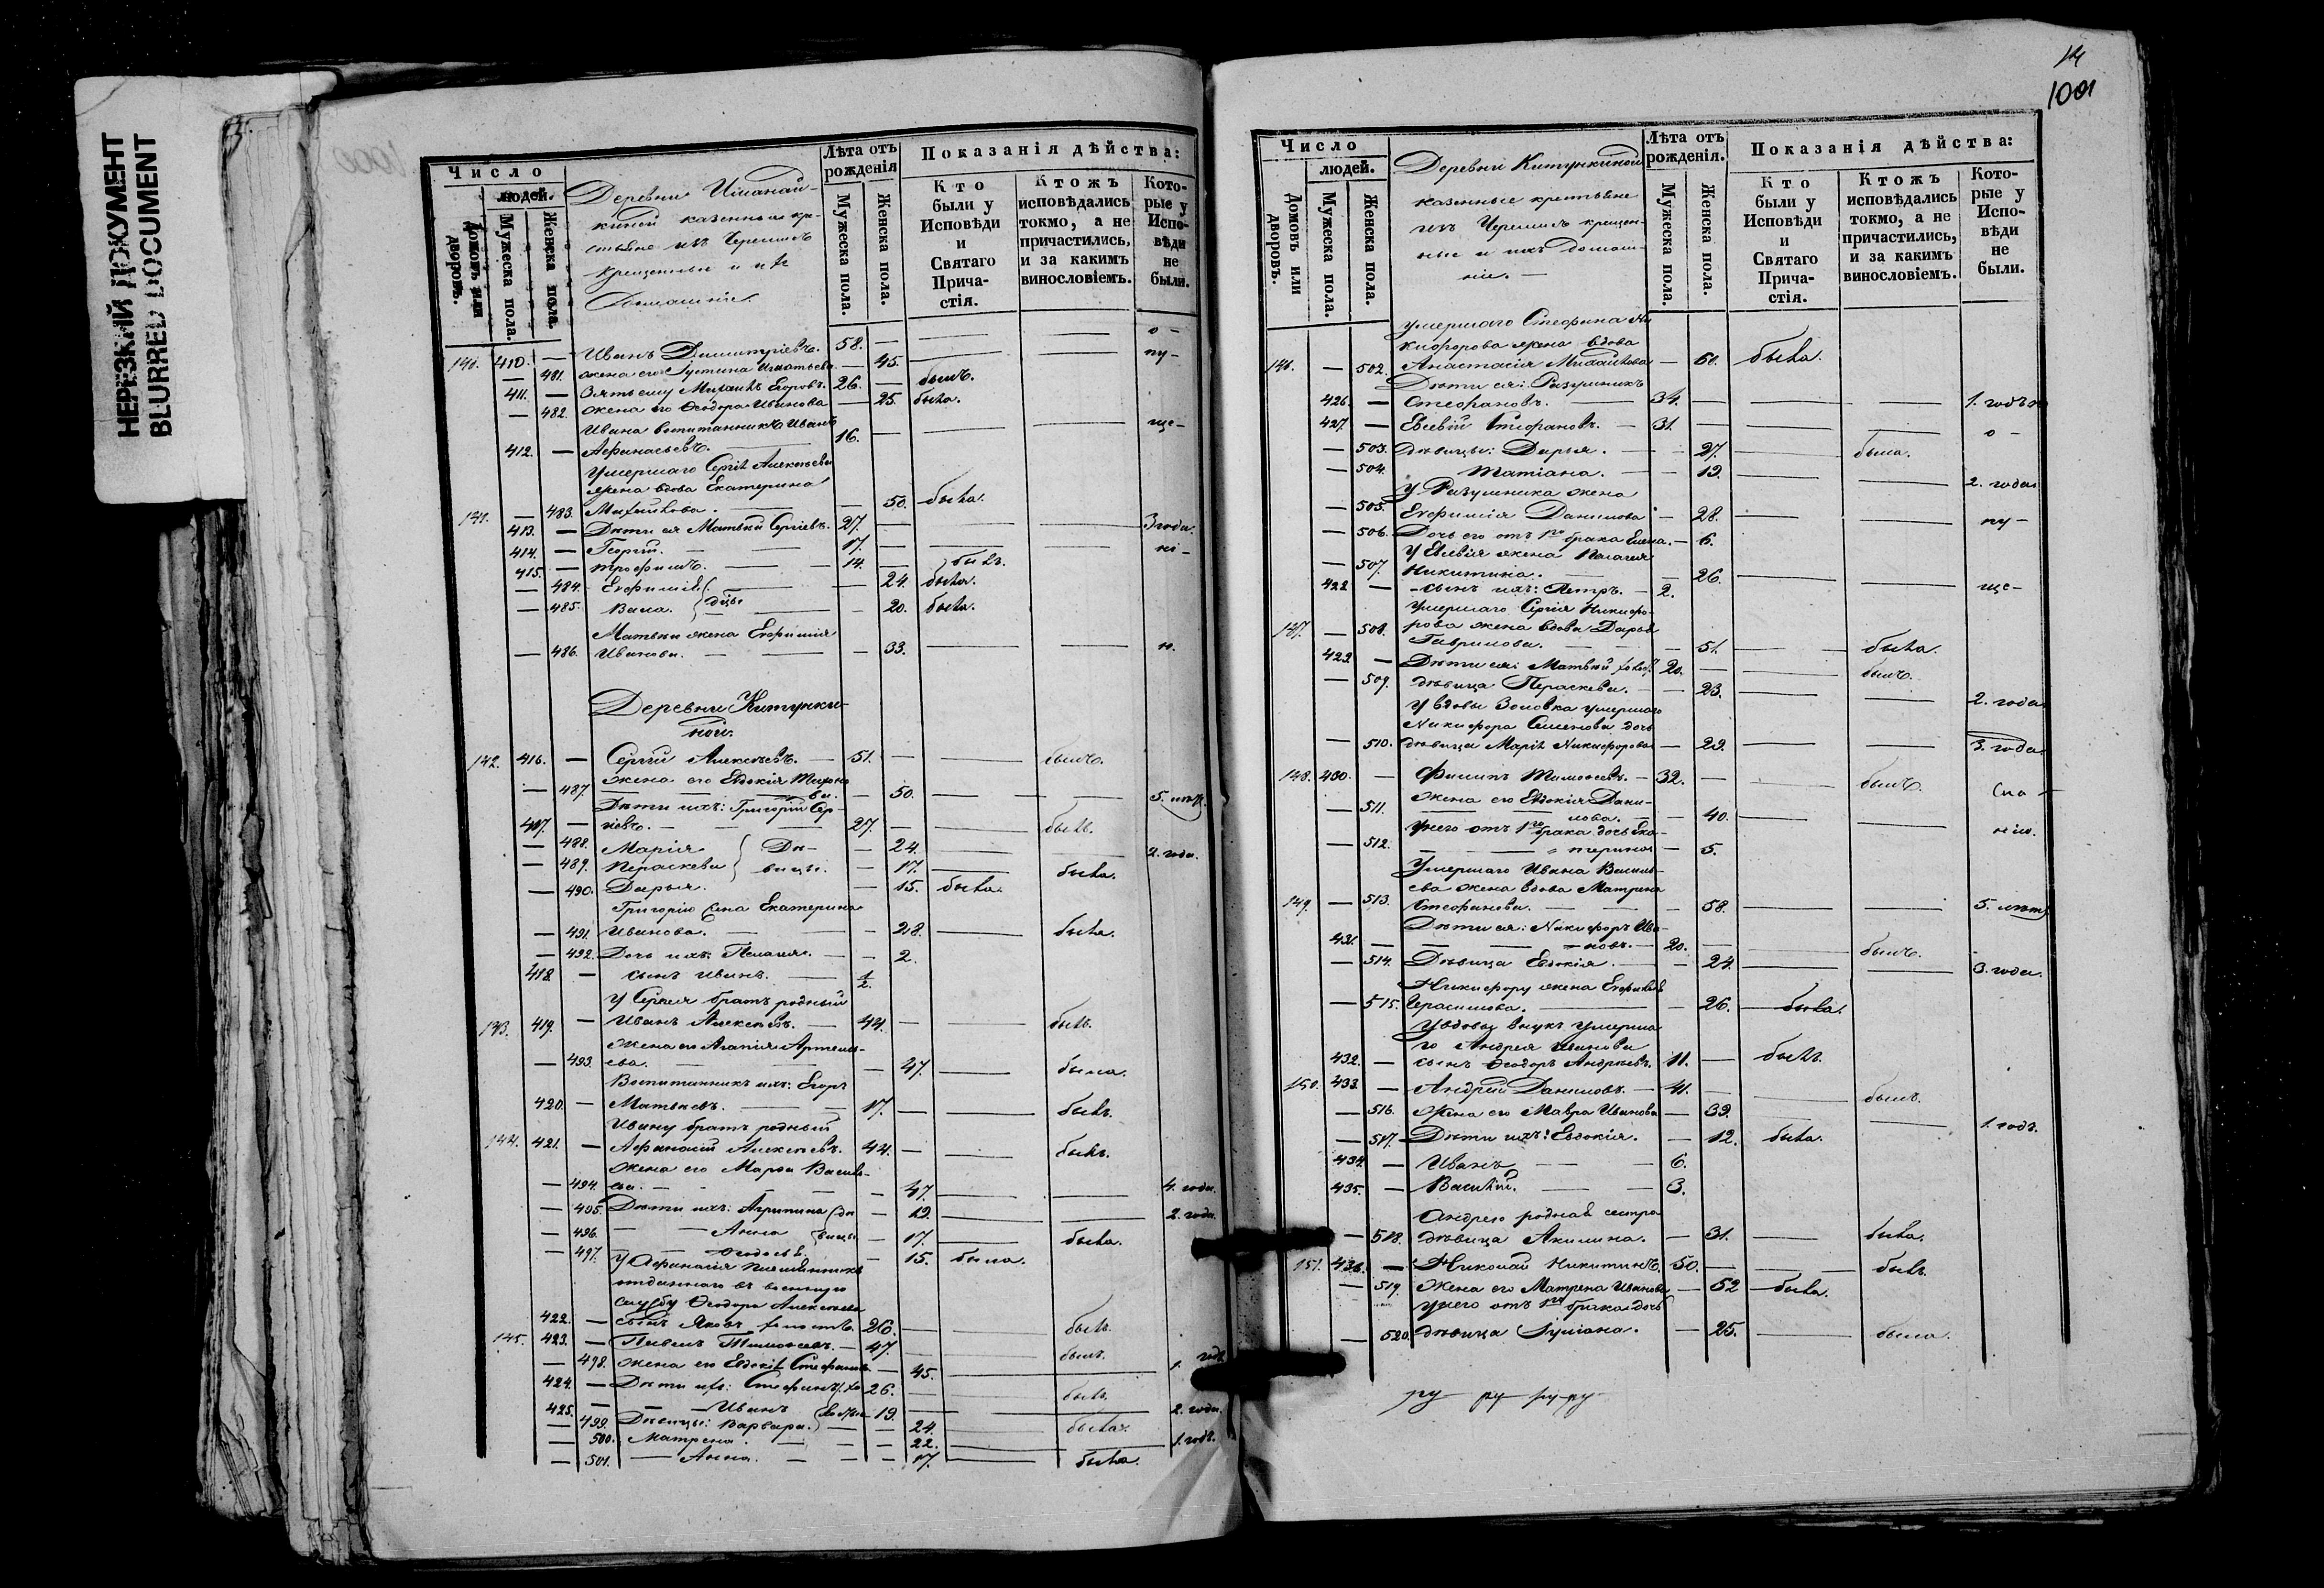 НЕРЕЗКИЙ ДОКУМЕНТ
BLURRED DOCUMENT
Число
людей.
Домовъ или дворовъ.
Мужеска пола.
Женска пола.
Деревни
казенные кре-
стьяне изъ Черемисъ
Крещенные и ихъ
Домашніе.
Лѣта отъ рожденія
Мужеска пола.
Женска пола.
Показанія дѣйства:
Кто были у Исповѣди и Святаго Прича-стія.
Ктожъ исповѣдались токмо, а не причастились, и за какимъ винословіемъ.
Кото-рые у Испо-вѣди не были.
140. 410. — Иванъ Димитріевъ. 58. — о-
— 481. жена его Іустина Игнатьева — 45. пу-
411. — Зять ему Михаилъ Егоровъ. 26. — былъ.
— 482. жена его Ѳеодора Иванова — 25. была.
Ивана воспитанникъ Иванъ
412. — Аѳанасьевъ. 16. ще-
Умершаго Сергія Алексѣева
жена вдова Екатерина
141. — 483. Михайлова. — 50. была.
413. — Дѣти ея Матвѣй Сергіевъ. 27. — 3 года.
414. — Георгій. 17. — ні-
415. — Трофимъ. 14. — былъ.
— 484. Евфимія 24. была.
— 485. Васса. дѣвицы — 20. была.
Матвѣя жена Евфимія
— 486. Иванова. — 33. — я.
Деревни Китунки-
ной.
142. 416. — Сергій Алексѣевъ. — 51. — былъ.
жена его Евдокія Тихоно
— 487. ва. — 50. — 5. лѣтъ.
Дѣти ихъ: Григорій Сер-
417. — гіевъ. 27. — былъ.
— 488. Марія Дѣ- — 24. 2. года.
— 489. Параскева вицы. — 17. была.
— 490. Дарья. — 15. была.
Григорію жена Екатерина
— 491. Иванова. — 28. — была.
— 492. Дочь ихъ: Пелагія. — 2.
418. — сынъ Иванъ. ½.
У Сергія братъ родный
143. 419. — Иванъ Алексѣевъ. — 44. — былъ.
Жена его Агапія Артемь-
— 493. ева. — 47. — была.
Воспитанникъ ихъ: Егоръ
420. — Матвѣевъ. 17. — былъ.
Ивану братъ родный
144. 421. — Аѳанасій Алексѣевъ. 44. — былъ.
Жена его Марѳа Василь-
— 494. ева. — 47. — 4. года.
— 495. Дѣти ихъ: Агрипина дѣ — 19. — 2. года.
— 496. Анна вицы — 17. — была.
— 497. Ѳеодосія. — 15. была.
У Аѳанасія племянникъ
отданнаго въ военную
службу Ѳеодора Алексѣева
422. — сынъ Яковъ 26. — былъ.
145. 423. — Павелъ Тимоѳеевъ. — 47. былъ.
— 498. жена его Евдокія Стефанова — 45. — 1. годъ
424. — Дѣти ихъ: Стефанъ 26. — былъ.
425. — Иванъ холосты 19. — 2. года.
— 499. Дѣвицы: Варвара. — 24. — была.
— 500. Матрена. — 22. — 1. годъ.
— 501. Анна. — 17. — была.
14
1001
Число
людей.
Домовъ или дворовъ.
Мужеска пола.
Женска пола.
Деревни Китункиной
казенные крестьяне
изъ Черемисъ крещен-
ные и ихъ домаш-
ніе. —
Лѣта отъ рожденія.
Мужеска пола.
Женска пола.
Показанія дѣйства:
Кто были у Исповѣди и Святаго Прича-стія.
Ктожъ исповѣдались токмо, а не причастились, и за какимъ винословіемъ.
Кото-рые у Испо-вѣди не были.
умершаго Стефана Ни
кифорова жена вдова
146. — 502. Анастасія Михайлова — 60. была.
Дѣти ея: Разумникъ
426. — Стефановъ. 34. — 1. годъ
427. — Евсевій Стефановъ. — 31. — о-
— 503. Дѣвицы: Дарья. — 27. — была.
— 504. Татіана. — 19. — 2. года.
У Разумника жена
— 505. Евфимія Данилова — 28. — пу-
— 506. Дочь его отъ 1го брака Елена. — 6.
У Евсевія жена Пелагея
— 507. Никитина. — 26. — ще-
422 — сынъ ихъ: Петръ. — 2.
Умершаго Сергія Никифо-
рова жена вдова Дарья
147. — 508. Гаврилова. — 51. — была.
429. — Дѣти ея: Матвѣй холос. 20. — былъ.
— 509. дѣвица Параскева. — 23. — 2. года
У вдовы Золовка умершаго
Никифора Семенова дочь
— 510. дѣвица Марія Никифорова — 29. — 3. года.
148. 430. — Филипъ Тимоѳеевъ. — 32. — былъ.
Жена его Евдокія Дани-
— 511. лова. — 40.
У него отъ 1го брака дочь Ека-
— 512. терина — 5.
Умершаго Ивана Василь-
ева жена вдова Матрена
149. — 513. Стефанова. — 58. — 5. лѣтъ.
Дѣти ея: Никифоръ Ива-
431. — новъ. — 20. — былъ.
— 514. Дѣвица Евдокія. — 24. — 3. года.
Никифору жена Евфимія
— 515. Герасимова. — 26. — была.
У вдовы внукъ умерша
го Андрея Иванова
432. — сынъ Ѳеодоръ Андреевъ. 11. — былъ.
150. 433. — Андрей Даниловъ. — 41. — былъ.
— 516. Жена его Мавра Иванова — 39. — 1. годъ.
— 517. Дѣти ихъ: Евдокія. — 12. была.
434. — Иванъ — 6.
435. — Василій. — 3.
Андрею родная сестра
— 518. дѣвица Акилина. — 31. — была.
151. 436. — Николай Никитинъ. 50. — былъ.
— 519. Жена его Матрена Иванова — 52 — была.
У него отъ 1го брака дочь
— 520. дѣвица Іуліана. — 25. — была.